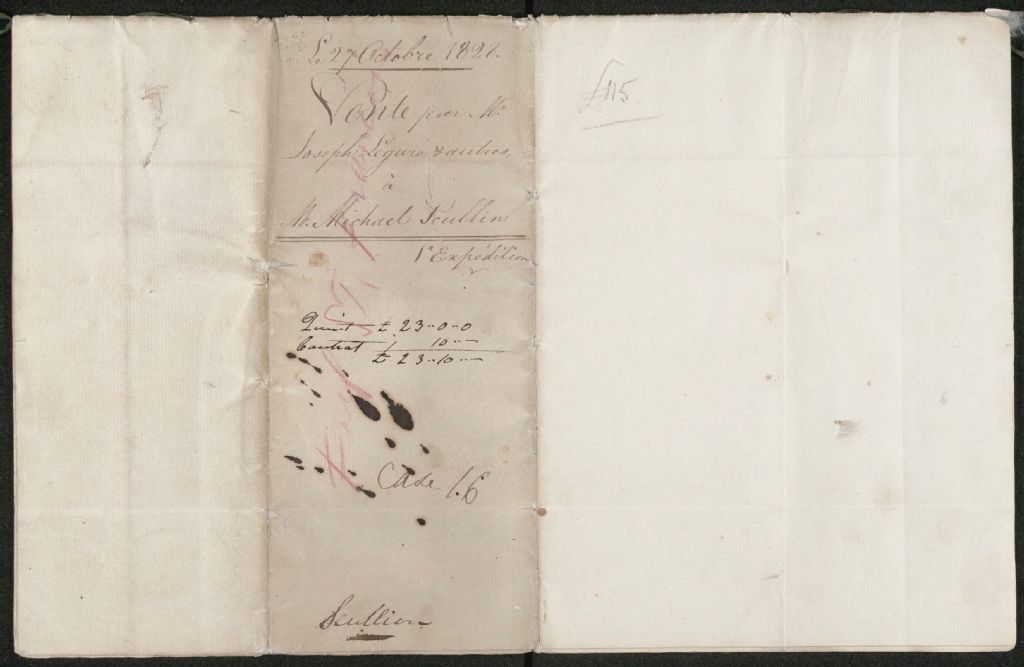 Le 27 Octobre 1827.
Vente par Mr.
Joseph Légaré, & autres,
à
Mr. Michael Scullin
1e. Expédition
Quint £ 23..0..0
Contrat / 10..—
£ 23..10..—
1.6
Scullion
£115